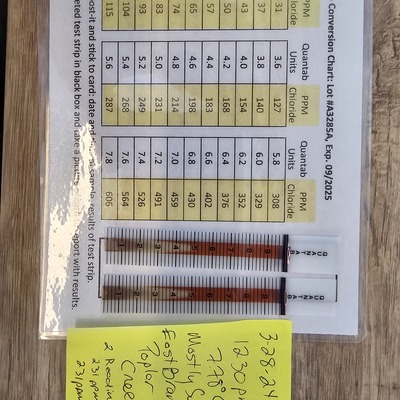 Conversion Chart: Lot #A3285A, Exp. 09/2025
PPM Chloride Quantab Units PPM Chloride Quantab Units PPM Chloride
31 3.6 127 5.8 308
37 3.8 140 6.0 329
43 4.0 154 6.2 352
50 4.2 168 6.4 376
57 4.4 183 6.6 402
65 4.6 198 6.8 430
74 4.8 214 7.0 459
83 5.0 231 7.2 491
93 5.2 249 7.4 526
104 5.4 268 7.6 564
115 5.6 287 7.8 606
post-it and stick to card: date and sample, results of test strip.
test strip in black box and take a with results.
QUANTAB
9 8 7 6 5 4 3 2 1
QUANTAB
9 8 7 6 5 4 3 2 1
3-28-24
1230p
7.78°C
Mostly S
East Bran
Poplar
Cree
2 Readin
231 ppm
231 ppm